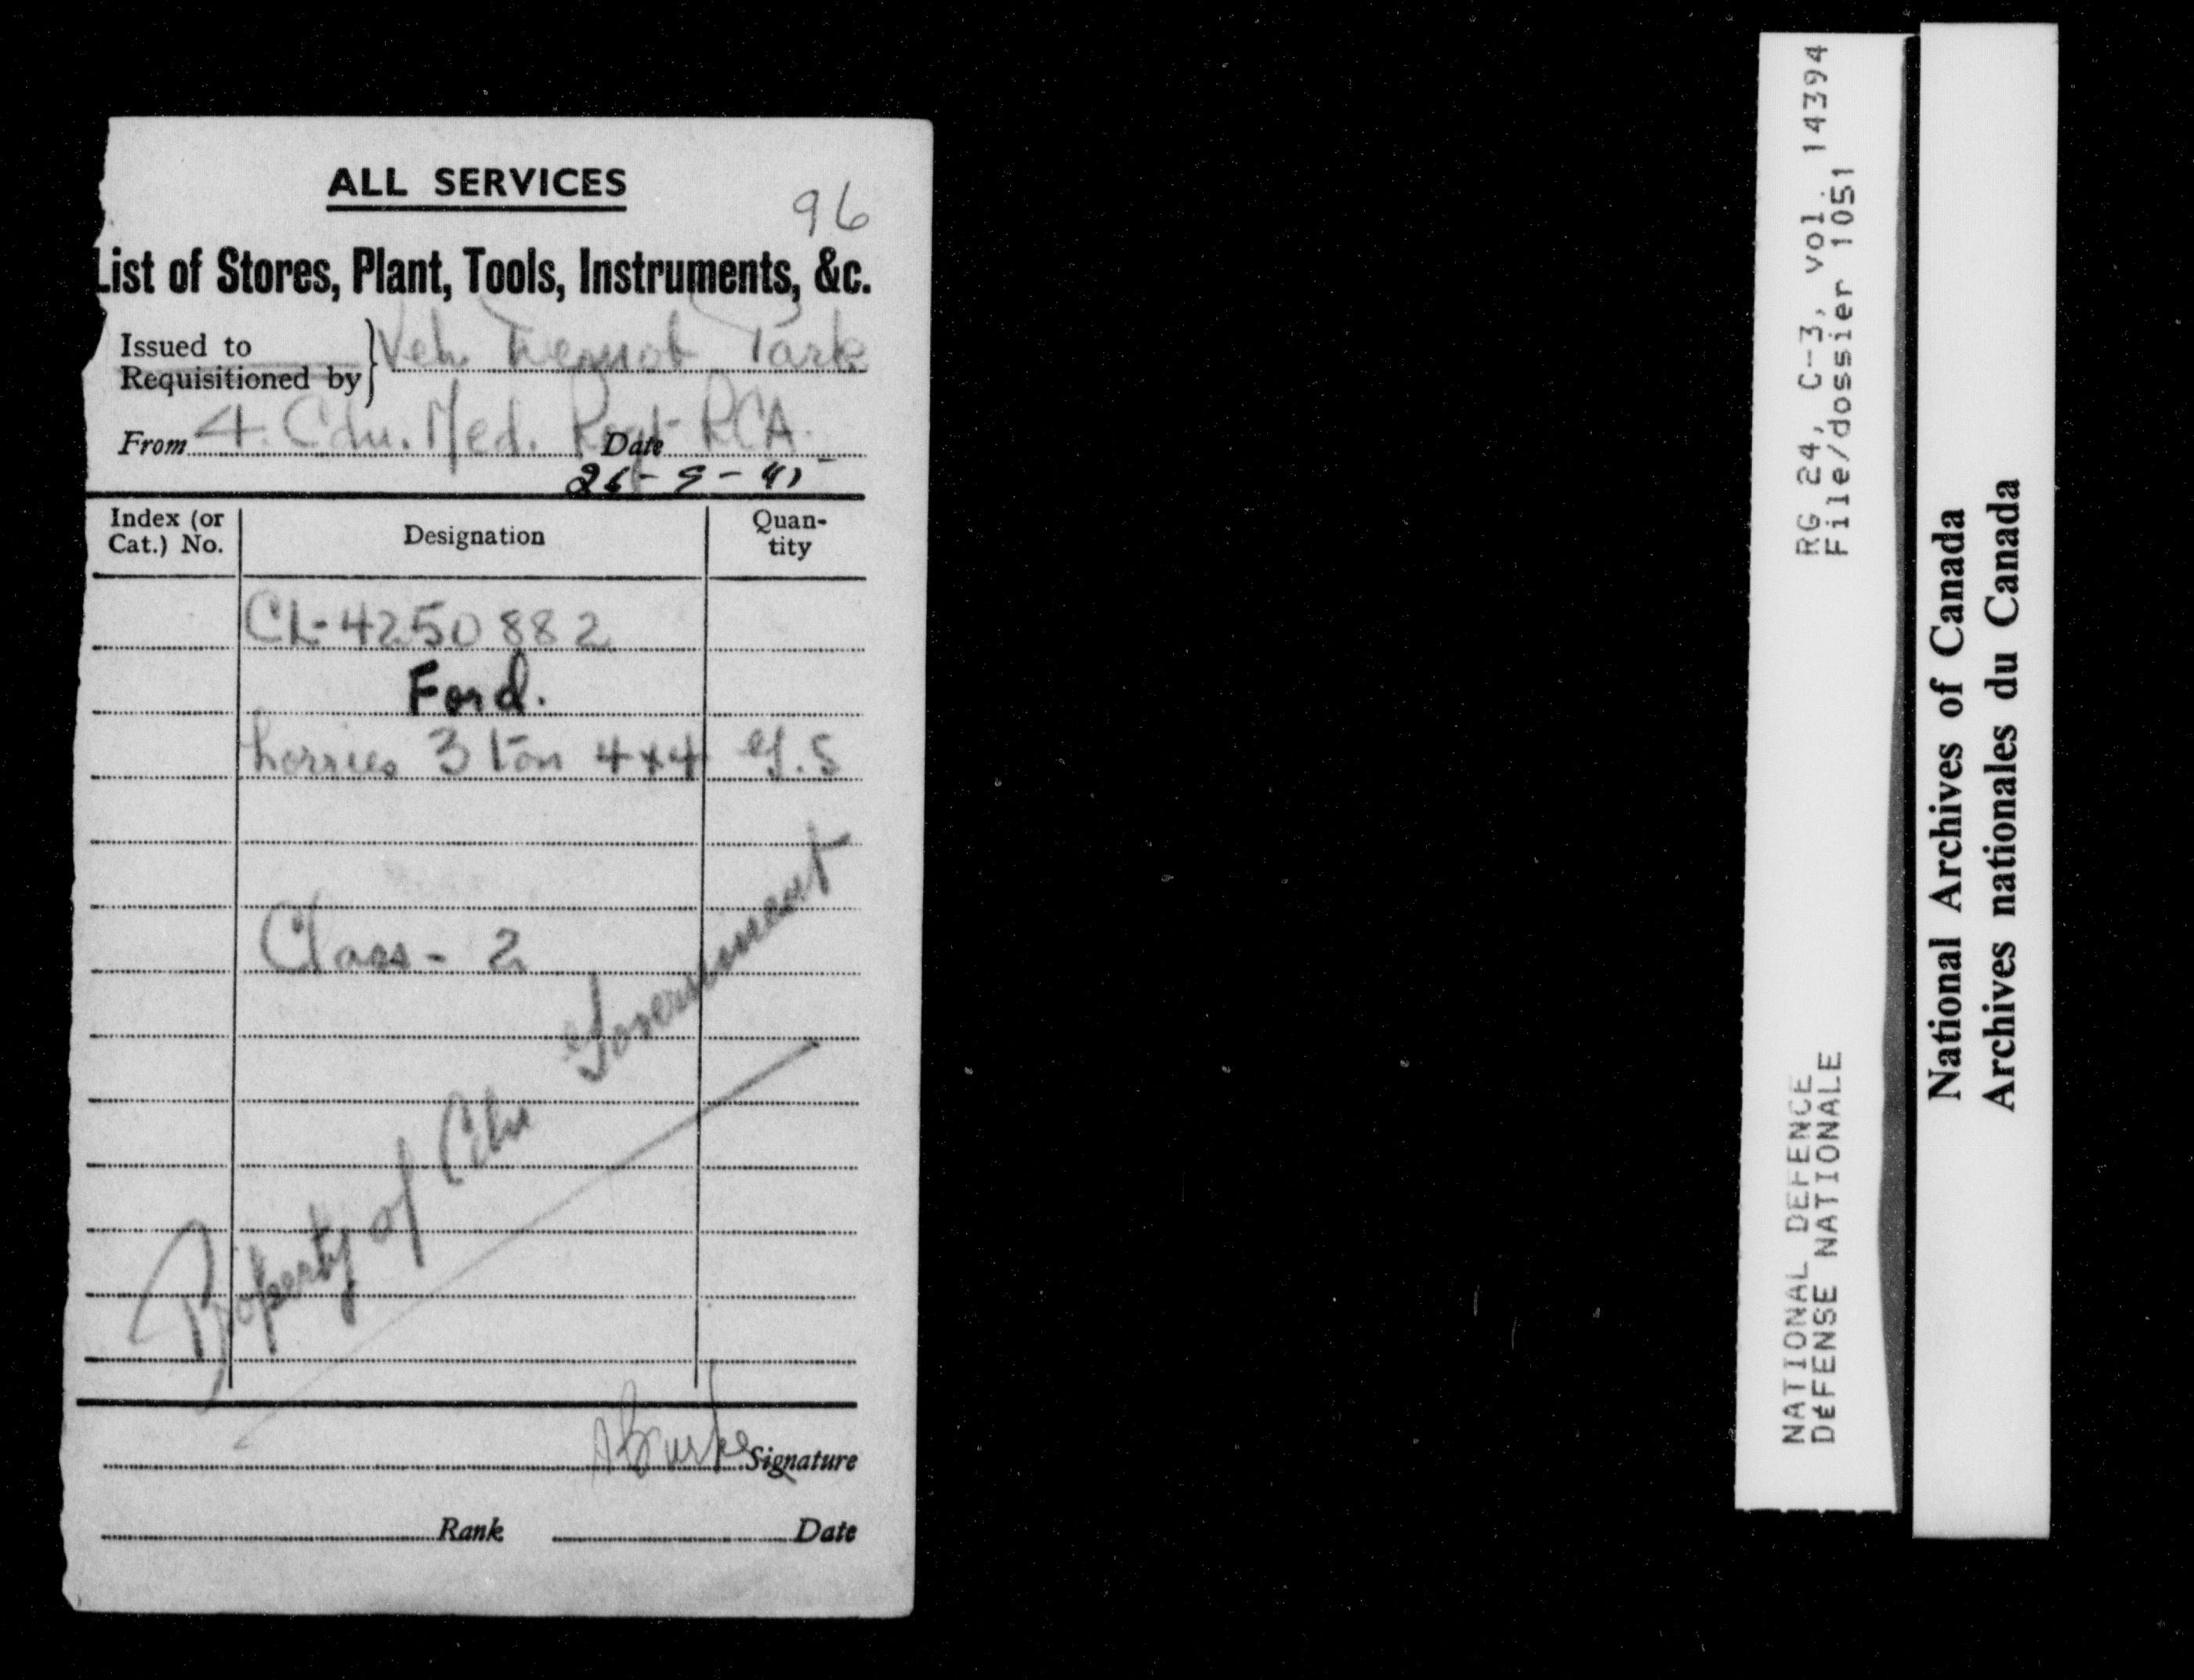 ALL SERVICES
96
List of Stores, Plant, Tools, Instruments, &c.
Issued to
Requisitioned by } Veh Park
From 4. Cdn. Med. Regt RCA. Date
26-9-45
Index (or Cat.) No. Designation Quantity
CL-4250882
Ford.
Lorries 3 ton 4x4 G.S
Class - 2
Property of Cdn Government
Signature
Rank Date
RG 24, C-3, vol. 14394
File/dossier 1051
NATIONAL DEFENCE
DÉFENSE NATIONALE
National Archives of Canada
Archives nationales du Canada